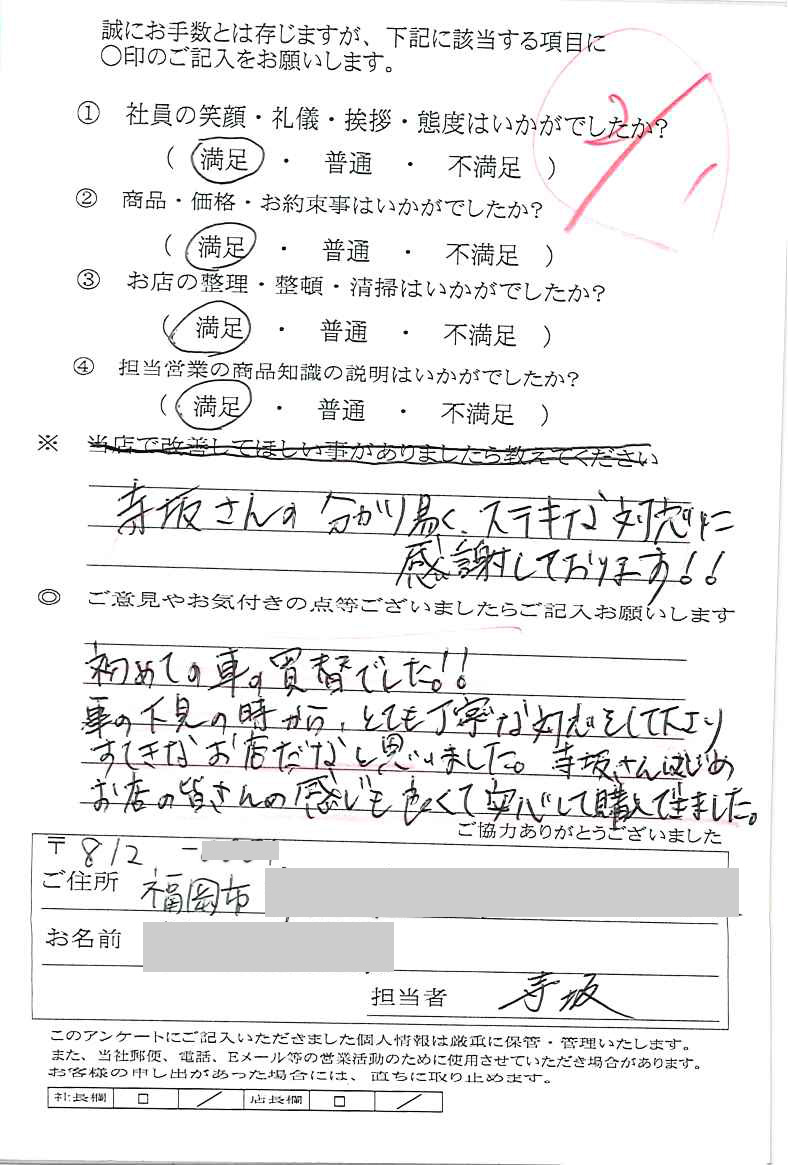 誠にお手数とは存じますが、下記に該当する項目に
〇印のご記入をお願いします。
① 社員の笑顔・礼儀・挨拶・態度はいかがでしたか?
( 満足 ・ 普通 ・ 不満足 )
② 商品・価格・お約束事はいかがでしたか?
( 満足 ・ 普通 ・ 不満足 )
③ お店の整理・整頓・清掃はいかがでしたか?
( 満足 ・ 普通 ・ 不満足 )
④ 担当営業の商品知識の説明はいかがでしたか?
( 満足 ・ 普通 ・ 不満足 )
※ 当店で改善してほしい事がありましたら教えてください
寺坂さんの分かり易く、ステキな対応に
感謝しております!!
◎ ご意見やお気付きの点等ございましたらご記入お願いします
初めての車の買替でした!!
車の下見の時から、とても丁寧な対応をして下さり
すてきなお店だなと思いました。寺坂さんはじめ
お店の皆さんの感じも良くて安心して購入できました。
ご協力ありがとうございました
〒812-
ご住所 福岡市
お名前
担当者 寺坂
このアンケートにご記入いただきました個人情報は厳重に保管・管理いたします。
また、当社郵便、電話、Eメール等の営業活動のために使用させていただき場合があります。
お客様の申し出があった場合には、直ちに取り止めます。
社長欄 □ / 店長欄 □ /